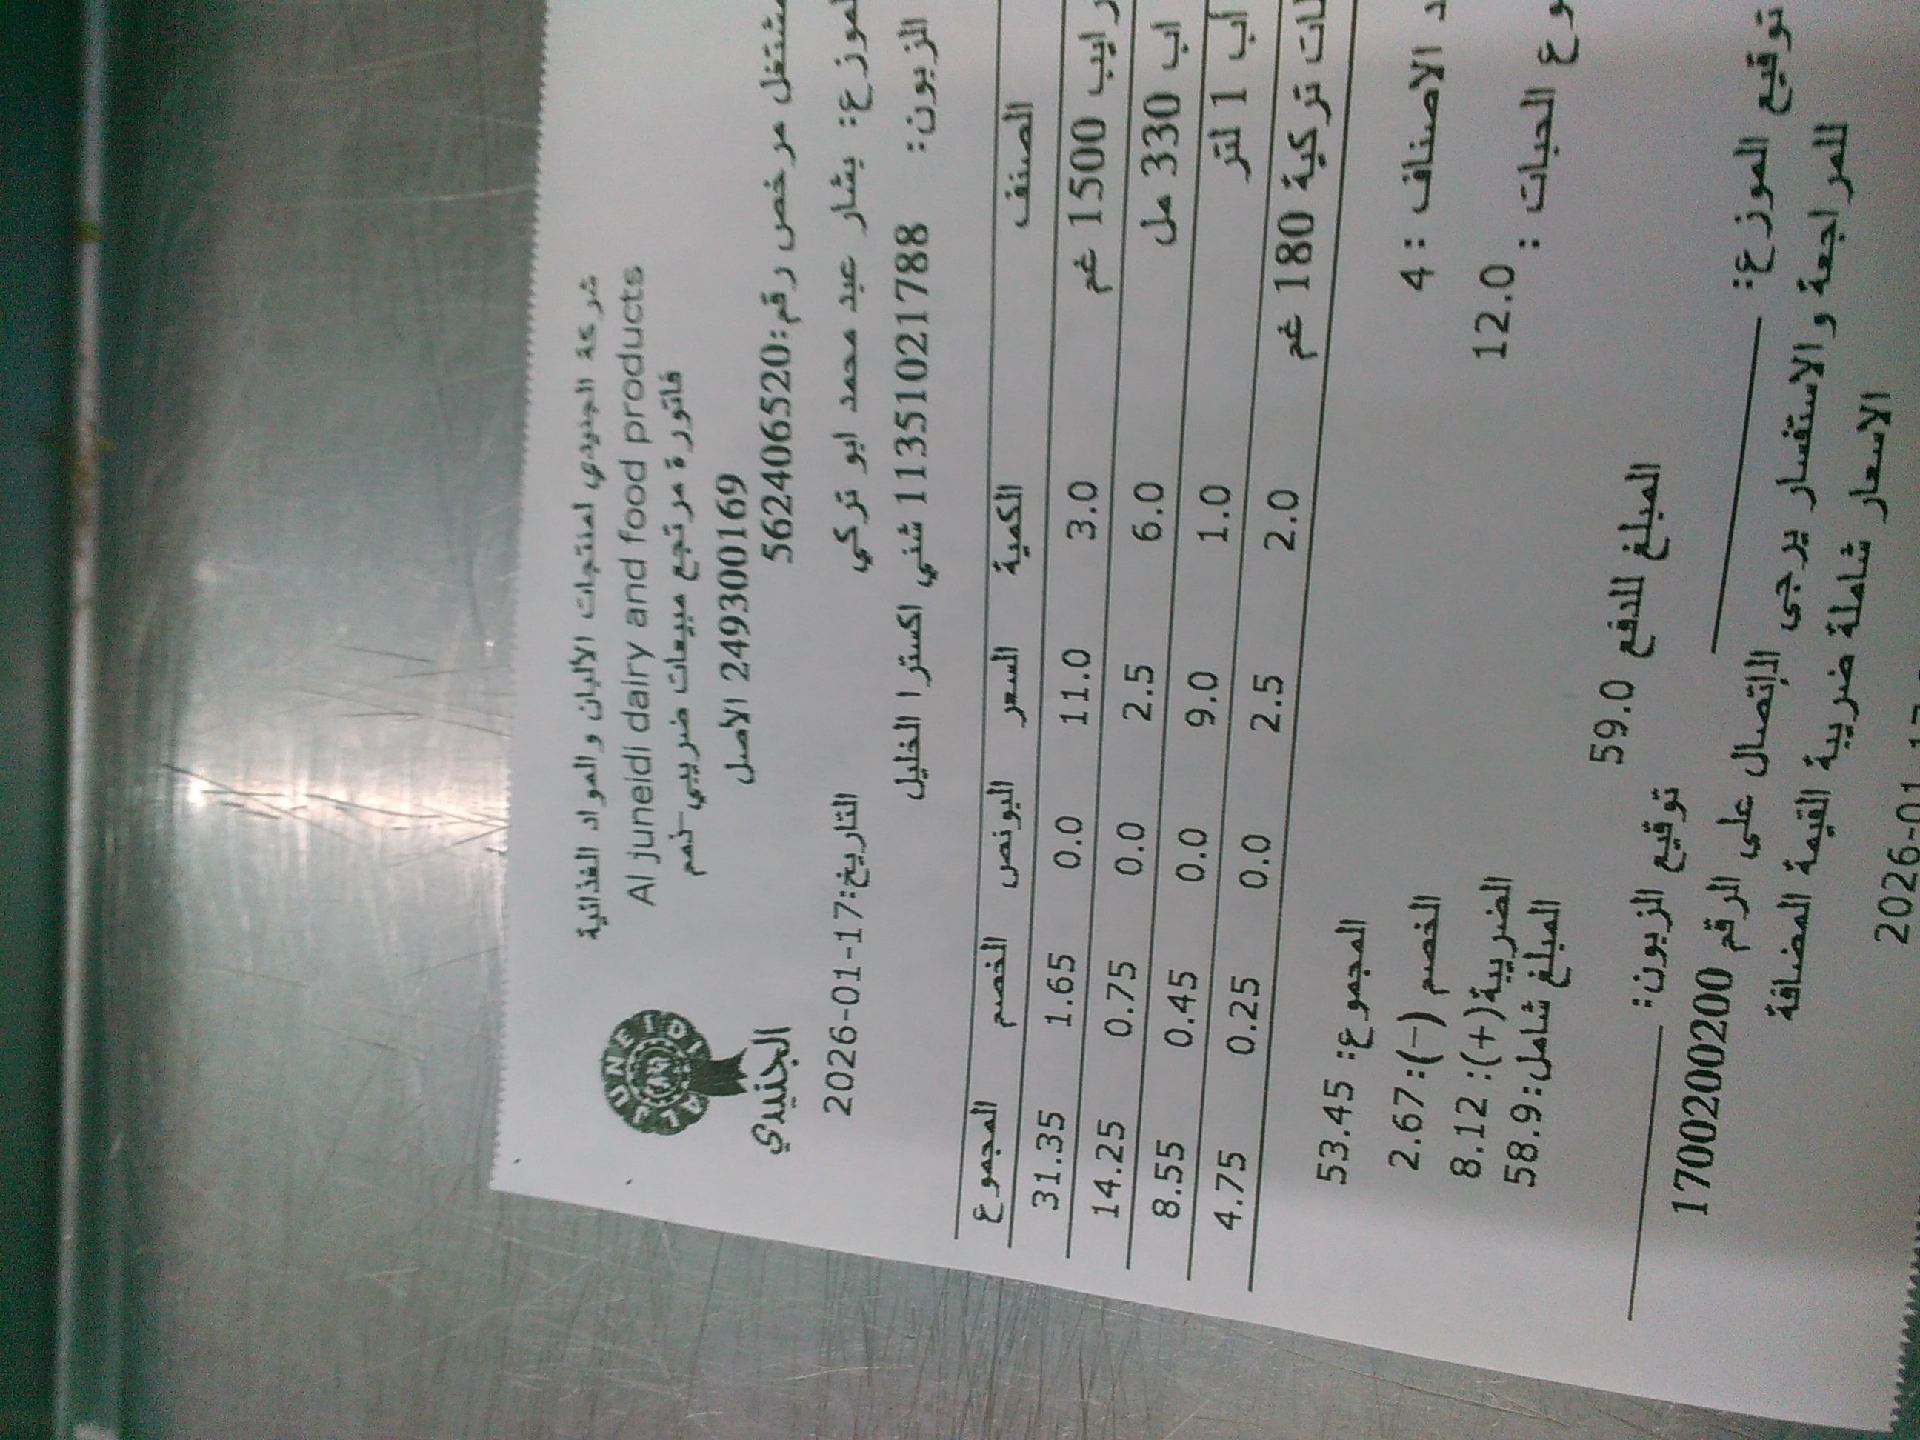 شركة الجنيدي لمنتجات الألبان والمواد الغذائية
Al juneidi dairy and food products
فاتورة مرتجع مبيعات ضريبي-نمم
249300169 الأصل
AL JUNEIDI
الجنيدي
مشتغل مرخص رقم:562406520
الموزع: بشار عبد محمد ابو تركي
التاريخ:2026-01-17
الزبون: 11351021788 شني اكسترا الخليل
الصنف الكمية السعر البونص الخصم المجموع
رايب 1500 غم 3.0 11.0 0.0 1.65 31.35
330 مل 6.0 2.5 0.0 0.75 14.25
1 لتر 1.0 9.0 0.0 0.45 8.55
تركية 180 غم 2.0 2.5 0.0 0.25 4.75
الاصناف : 4
المجموع: 53.45
الحبات : 12.0
الخصم (-): 2.67
الضريبة(+): 8.12
المبلغ شامل: 58.9
المبلغ للدفع 59.0
توقيع الموزع:
توقيع الزبون:
للمراجعة والاستفسار يرجى الإتصال على الرقم 1700200200
الاسعار شاملة ضريبة القيمة المضافة